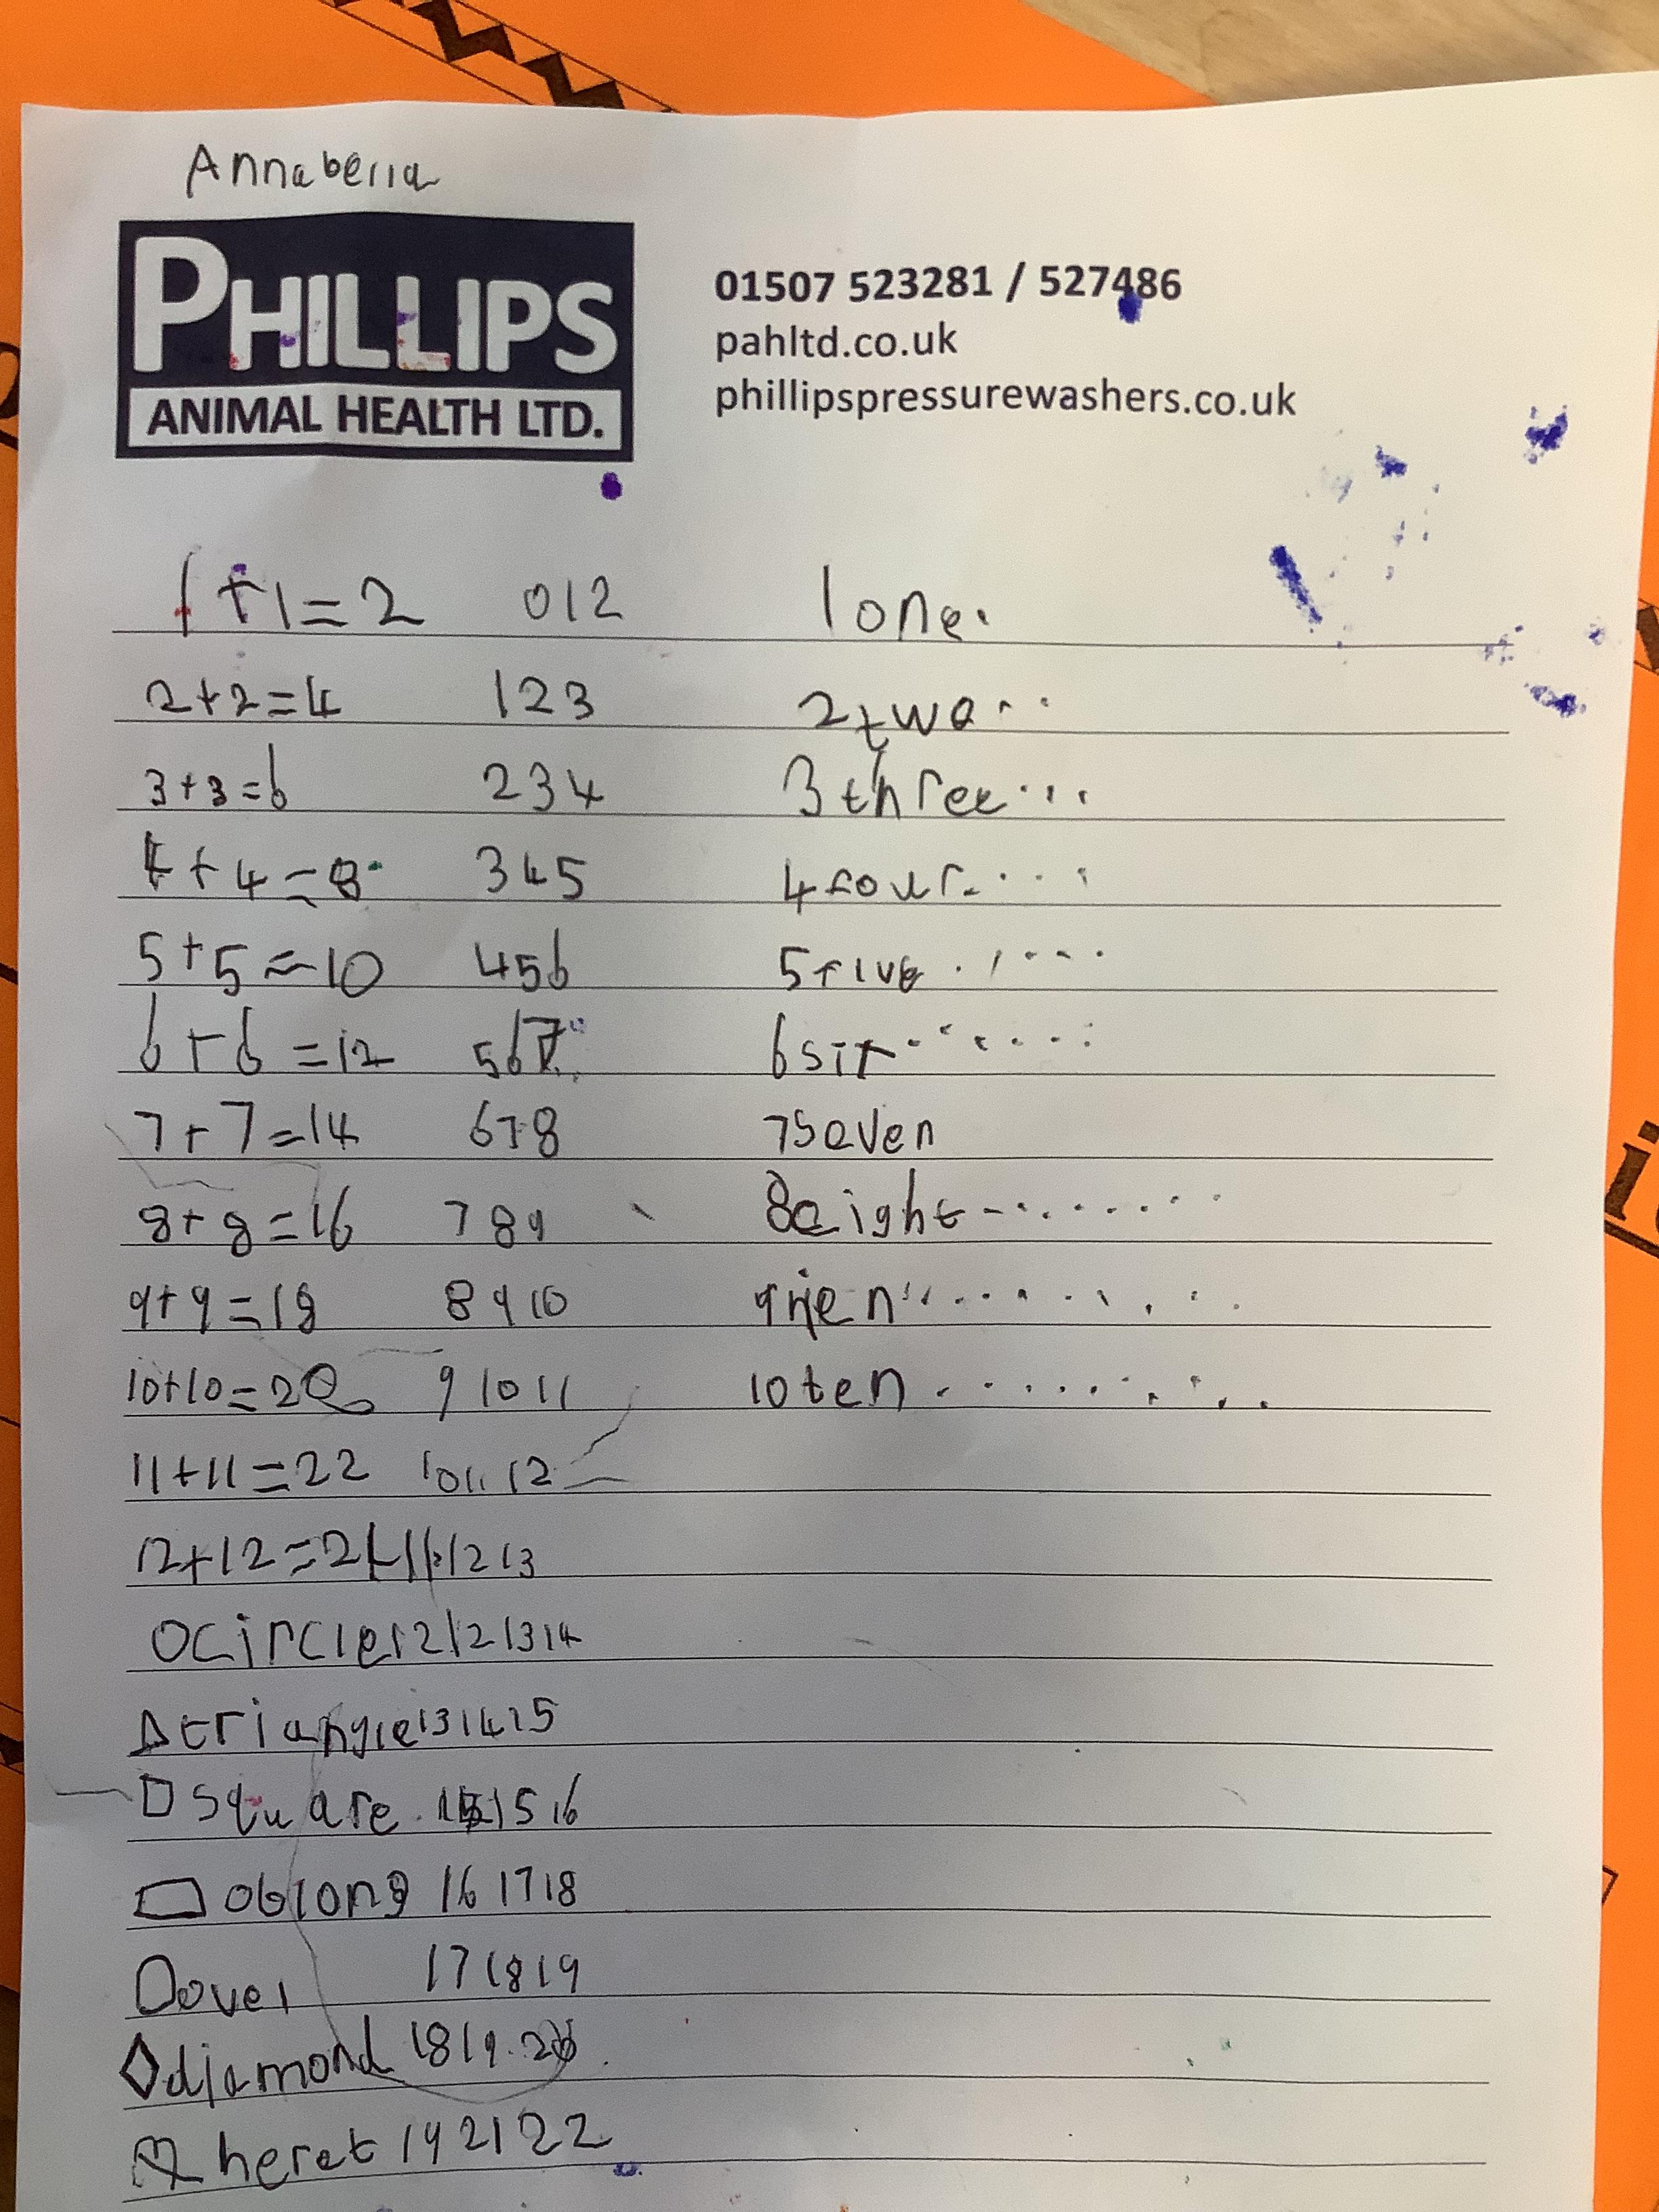 Annabella
PHILLIPS
ANIMAL HEALTH LTD.
01507 523281 / 527486
pahltd.co.uk
phillipspressurewashers.co.uk
1+1=2 012 1 one.
2+2=4 123 2 two..
3+3=6 234 3 three...
4+4=8 345 4 four....
5+5=10 456 5 five .....
6+6=12 567 6 six ......
7+7=14 678 7 seven
8+8=16 789 8 eight ........
9+9=18 8 9 10 9 .........
10+10=20 9 10 11 10 ten ..........
11+11=22 10 11 12
12+12=24 11 12 13
circle 12 12 13 14
triangle 13 14 15
square 15 16
oblong 16 17 18
ovel 17 18 19
diamond 18 19 20
heret 19 21 22